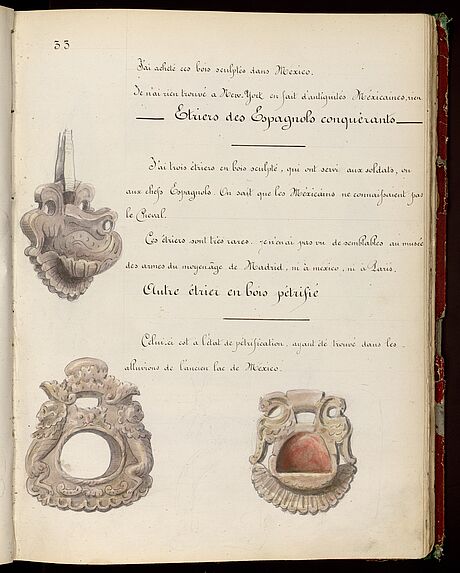 33
J'ai acheté ces bois sculptés dans Mexico.
Je n'ai rien trouvé a New-York en fait d'antiquités Méxicaines, rien
Etriers des Espagnols conquérants
J'ai trois étriers en bois sculpté, qui ont servi aux soldats, ou
aux chefs Espagnols. On sait que les Méxicains ne connaissaient pas
le Cheval.
Ces étriers sont très rares. je n'en ai pas vu de semblables au musée
des armes du moyen-âge de Madrid, ni à mexico, ni a Paris.
Autre étrier en bois pétrifié
Celui-ci est a l'état de pétrification, ayant été trouvé dans les
alluvions de l'ancien lac de Mexico.